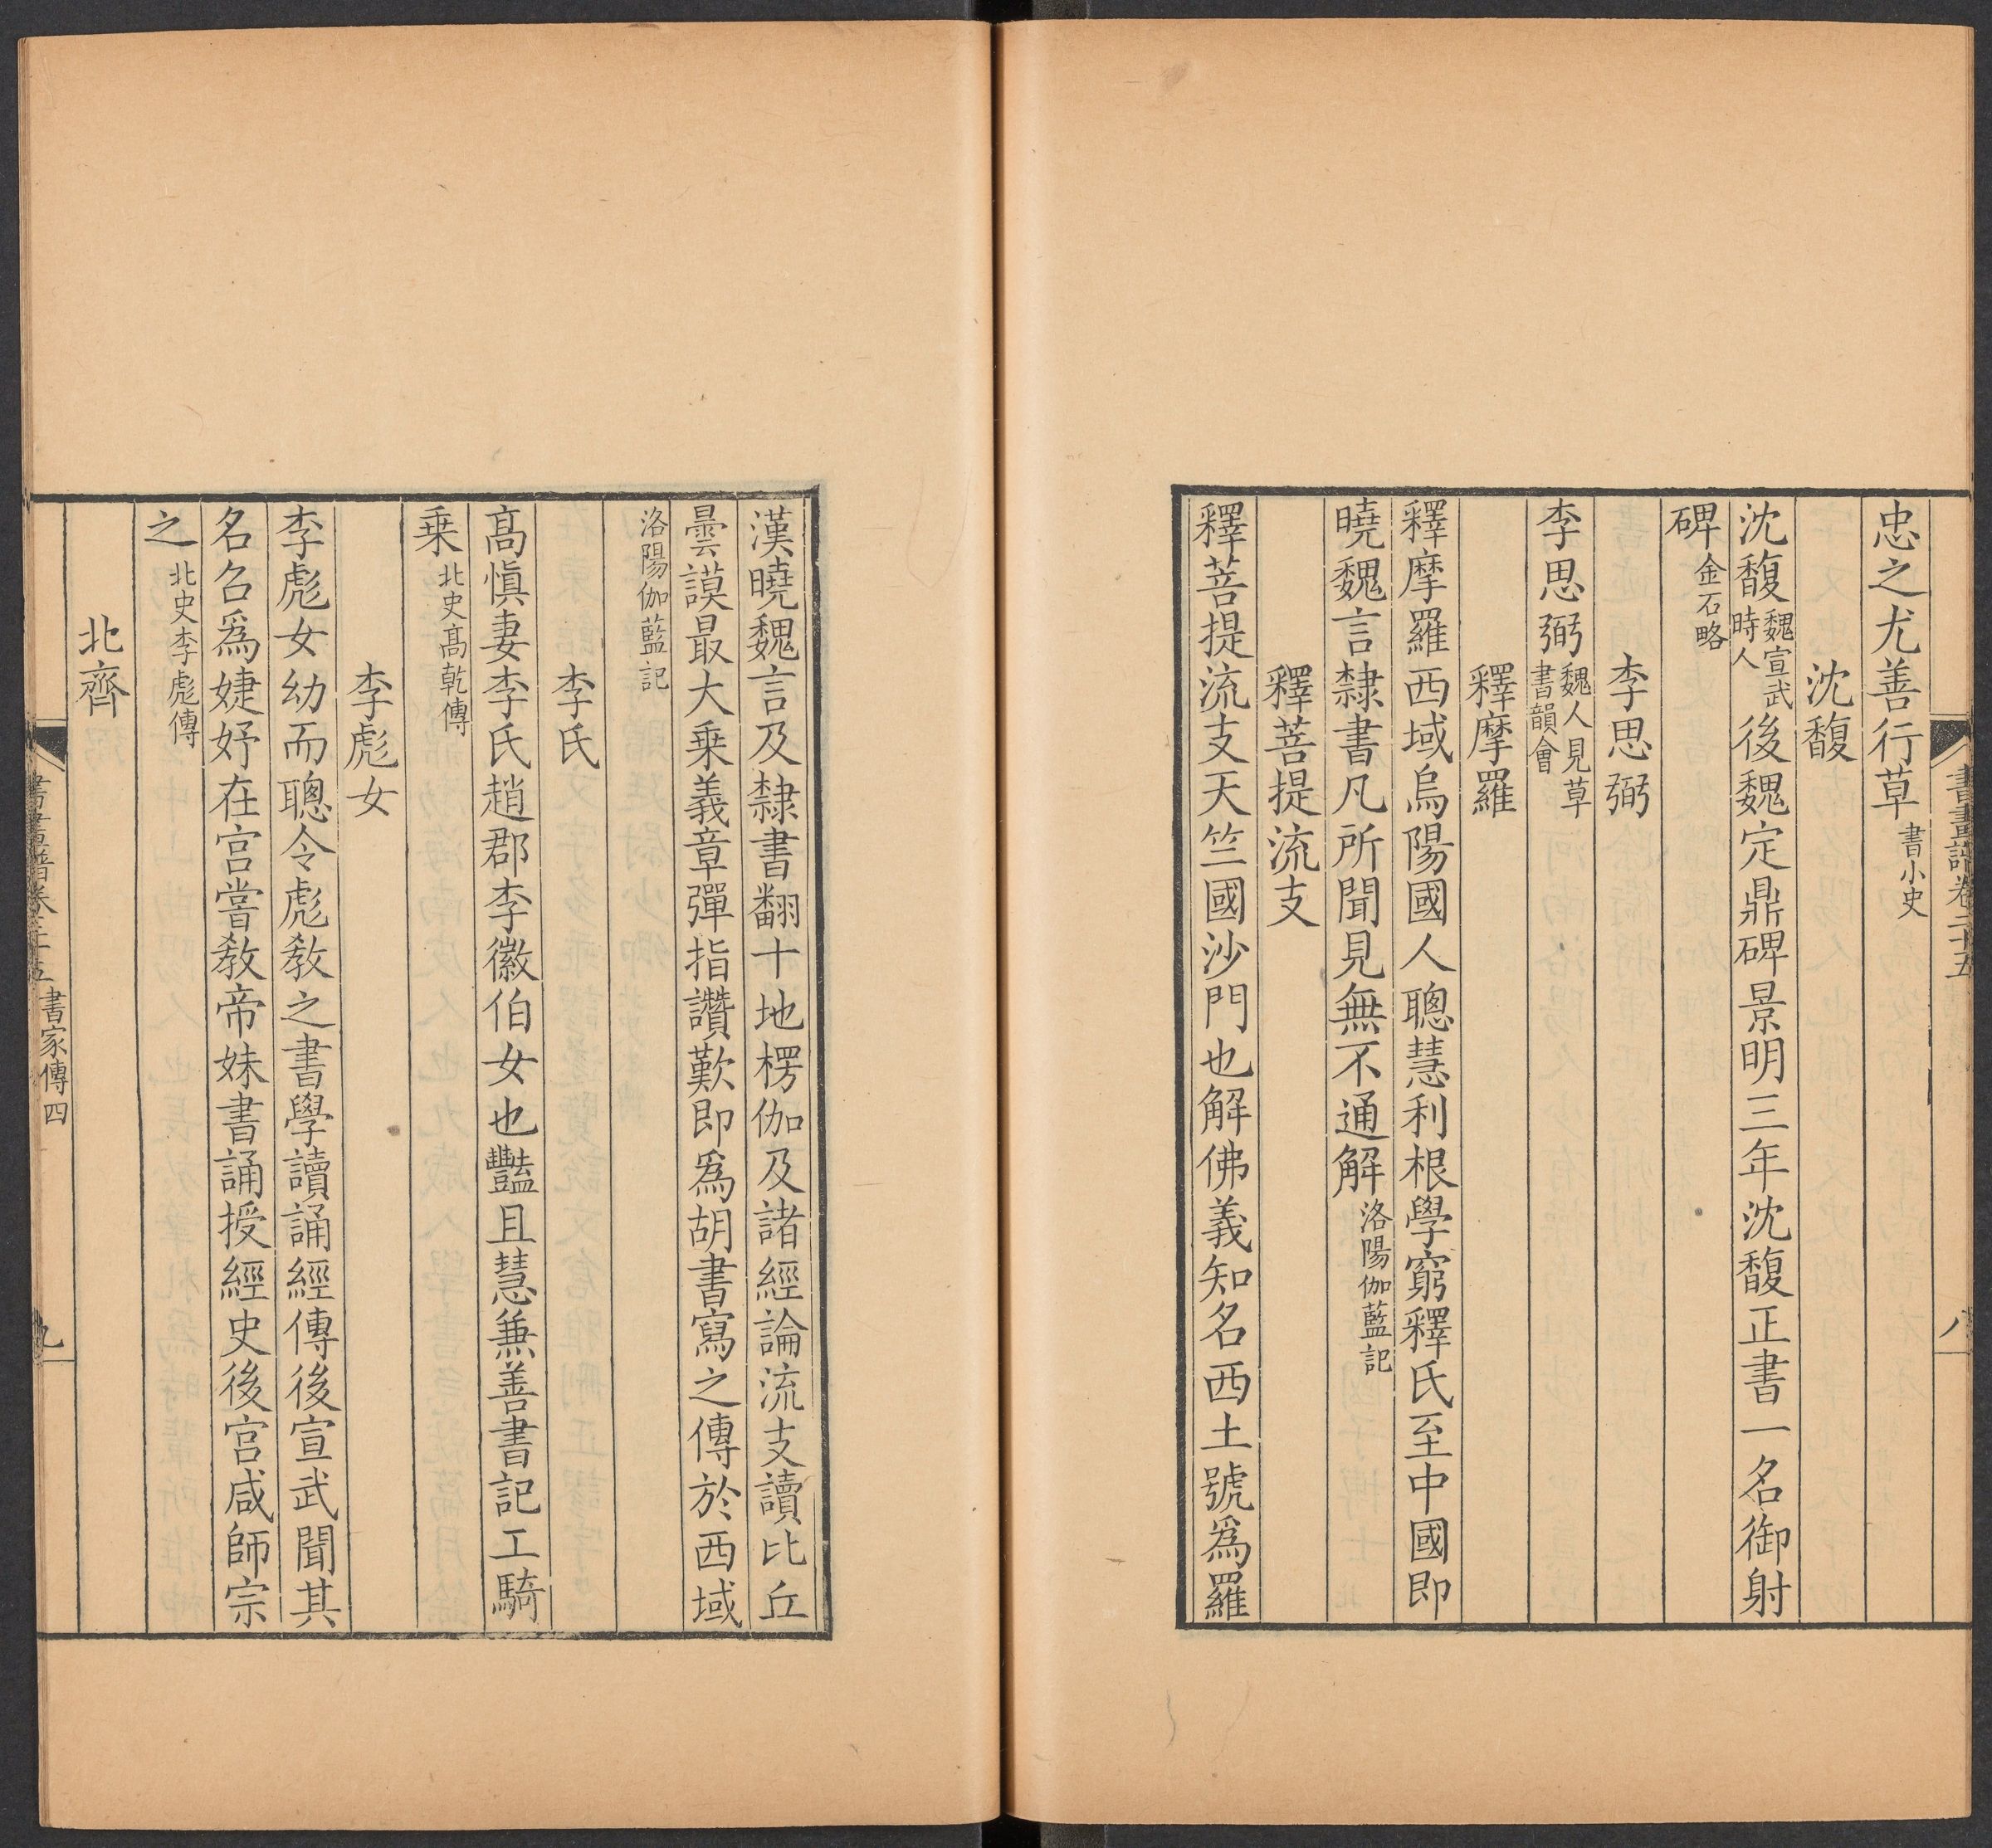 書畫譜卷二十五
八
忠之尤善行草書小史
沈馥
沈馥魏宣武時人後魏定鼎碑景明三年沈馥正書一名御射
碑金石略
李思弼
李思弼魏人見草書韻會
釋摩羅
釋摩羅西域烏陽國人聰慧利根學窮釋氏至中國即
曉魏言隸書凡所聞見無不通解洛陽伽藍記
釋菩提流支
釋菩提流支天竺國沙門也解佛義知名西土號爲羅
漢曉魏言及隸書翻十地楞伽及諸經論流支讀比丘
曇謨最大乘義章彈指讚歎即爲胡書寫之傳於西域
洛陽伽藍記
李氏
高愼妻李氏趙郡李徽伯女也豔且慧兼善書記工騎
乗北史高乾傳
李彪女
李彪女幼而聰令彪教之書學讀誦經傳後宣武聞其
名召爲婕妤在宫嘗教帝妹書誦授經史後宫咸師宗
之北史李彪傳
北齊
書畫譜卷二十五 書家傳四
九